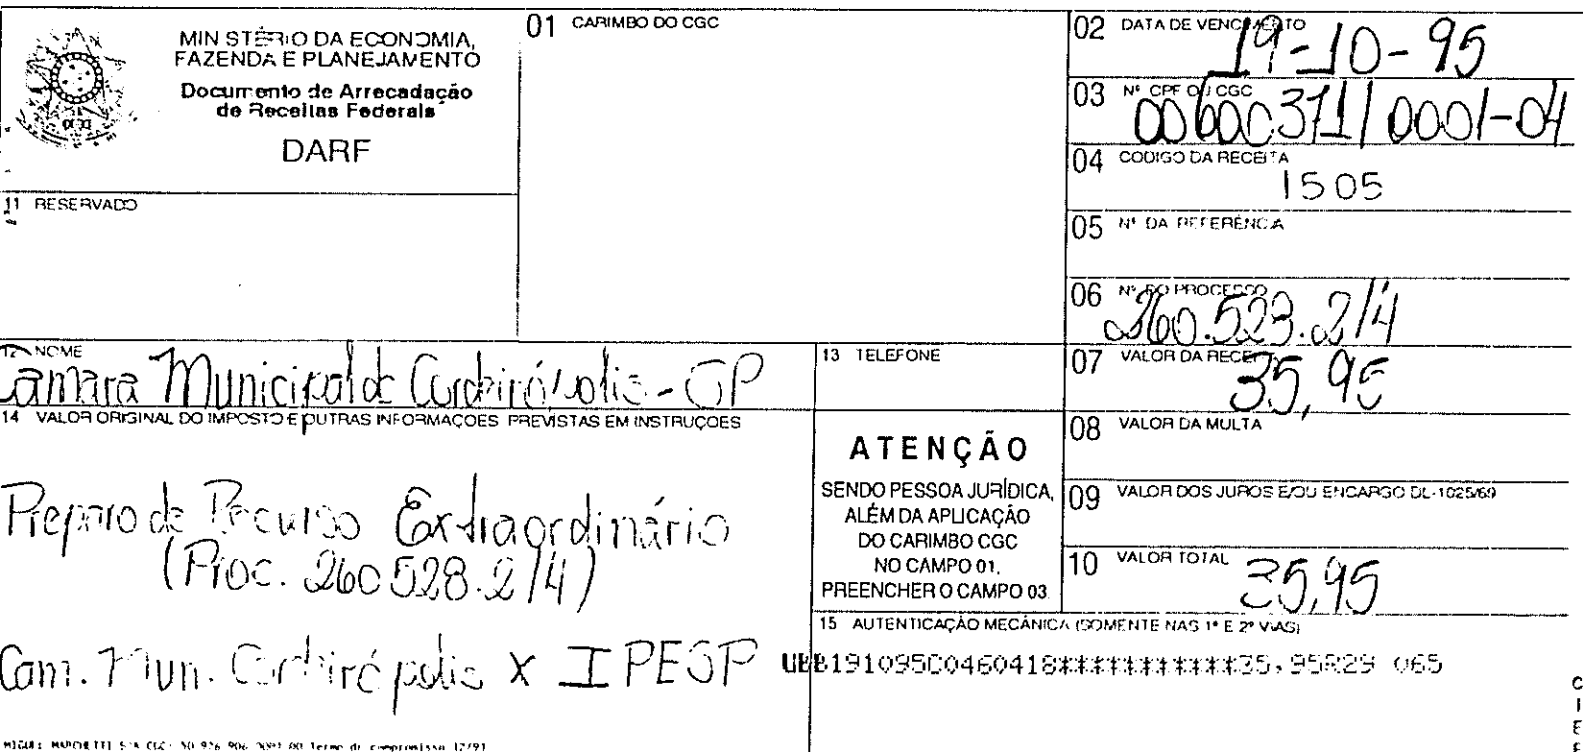 MINISTÉRIO DA ECONOMIA,
FAZENDA E PLANEJAMENTO
Documento de Arrecadação
de Receitas Federais
DARF
01 CARIMBO DO CGC
02 DATA DE VENCIMENTO
19-10-95
03 Nº CPF OU CGC
00600371/0001-04
04 CODIGO DA RECEITA
1505
11 RESERVADO
05 Nº DA REFERÊNCIA
06 Nº DO PROCESSO
260.528.2/4
12 NOME
Câmara Municipal de Cordeirópolis - SP
13 TELEFONE
07 VALOR DA RECEITA
35,95
14 VALOR ORIGINAL DO IMPOSTO E OUTRAS INFORMAÇÕES PREVISTAS EM INSTRUÇÕES
Preparo de Recurso Extraordinário
(Proc. 260528.2/4)
Cam. Mun. Cordeirópolis X IPESP
ATENÇÃO
SENDO PESSOA JURÍDICA,
ALÉM DA APLICAÇÃO
DO CARIMBO CGC
NO CAMPO 01,
PREENCHER O CAMPO 03.
08 VALOR DA MULTA
09 VALOR DOS JUROS E/OU ENCARGO DL-1025/69
10 VALOR TOTAL
35,95
15 AUTENTICAÇÃO MECÂNICA (SOMENTE NAS 1ª E 2ª VIAS)
UBB191095C0460418************35,95R29 065